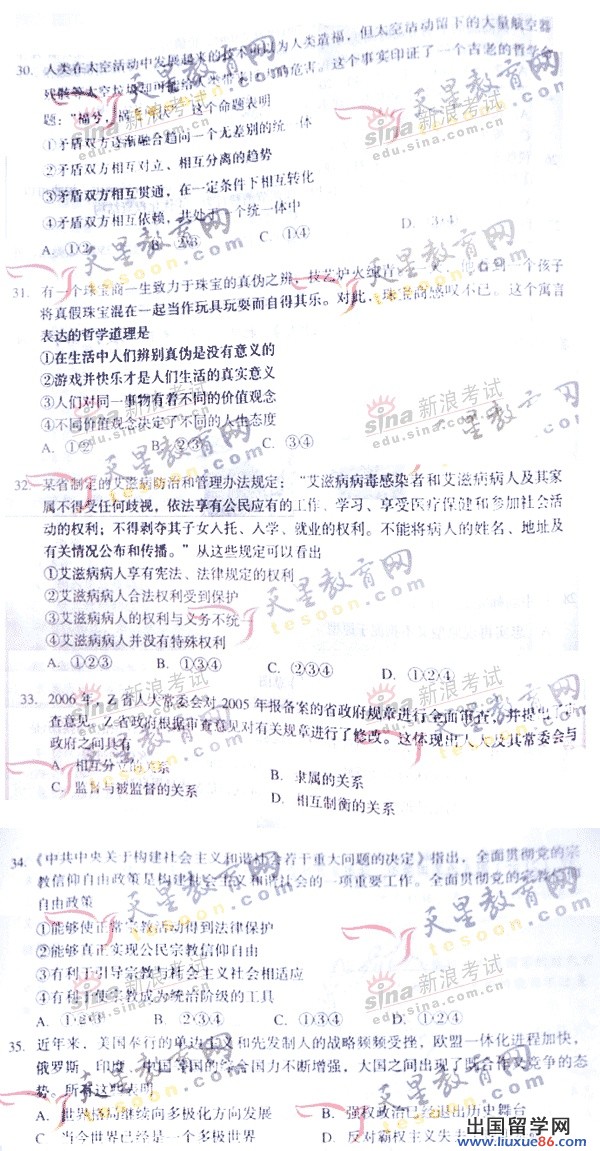 30. 人类在太空活动中发展起来的技术可以为人类造福，但太空活动留下的大量航空器
残骸等太空垃圾却可能给人类带来的危害。这个事实印证了一个古老的哲学命
题：“福兮，祸”这个命题表明
①矛盾双方逐渐融合趋向一个无差别的统一体
②矛盾双方相互对立、相互分离的趋势
③矛盾双方相互贯通，在一定条件下相互转化
④矛盾双方相互依赖，共处于一个统一体中
A. ①② B. ②③ C. ①④ D. ③④
31. 有一个珠宝商一生致力于珠宝的真伪之辨，技艺炉火纯青。一天，他看到一个孩子
将真假珠宝混在一起当作玩具玩耍而自得其乐。对此，珠宝商感叹不已。这个寓言
表达的哲学道理是
①在生活中人们辨别真伪是没有意义的
②游戏并快乐才是人们生活的真实意义
③人们对同一事物有着不同的价值观念
④不同价值观念决定了不同的人生态度
A. ①② B. ②③ C. ③④
32. 某省制定的艾滋病防治和管理办法规定：“艾滋病病毒感染者和艾滋病病人及其家
属不得受任何歧视，依法享有公民应有的工作、学习、享受医疗保健和参加社会活
动的权利；不得剥夺其子女入托、入学、就业的权利。不能将病人的姓名、地址及
有关情况公布和传播。”从这些规定可以看出
①艾滋病病人享有宪法、法律规定的权利
②艾滋病病人合法权利受到保护
③艾滋病病人的权利与义务不统一
④艾滋病病人并没有特殊权利
A. ①②③ B. ①③④ C. ②③④ D. ①②④
33. 2006 年，乙省人大常委会对 2005 年报备案的省政府规章进行全面审查，并提出了审
查意见，乙省政府根据审查意见对有关规章进行了修改。这体现出人大及其常委会与
政府之间具有
A. 相互分立的关系 B. 隶属的关系
C. 监督与被监督的关系 D. 相互制衡的关系
34. 《中共中央关于构建社会主义和谐社会若干重大问题的决定》指出，全面贯彻党的宗
教信仰自由政策是构建社会主义和谐社会的一项重要工作。全面贯彻党的宗教信仰
自由政策
①能够使正常宗教活动得到法律保护
②能够真正实现公民宗教信仰自由
③有利于引导宗教与社会主义社会相适应
④有利于使宗教成为统治阶级的工具
A. ①②③ B. ②③④ C. ①③④ D. ①②④
35. 近年来，美国奉行的单边主义和先发制人的战略频频受挫，欧盟一体化进程加快，
俄罗斯、印度、中国等国的综合国力不断增强，大国之间出现了既合作又竞争的态
势。所有这些表明
A. 世界格局继续向多极化方向发展 B. 强权政治已经退出历史舞台
C. 当今世界已经是一个多极世界 D. 反对霸权主义失去
天星教育网
tesoon.com
sina 新浪考试
edu.sina.com.cn
出国留学网
www.liuxue86.com